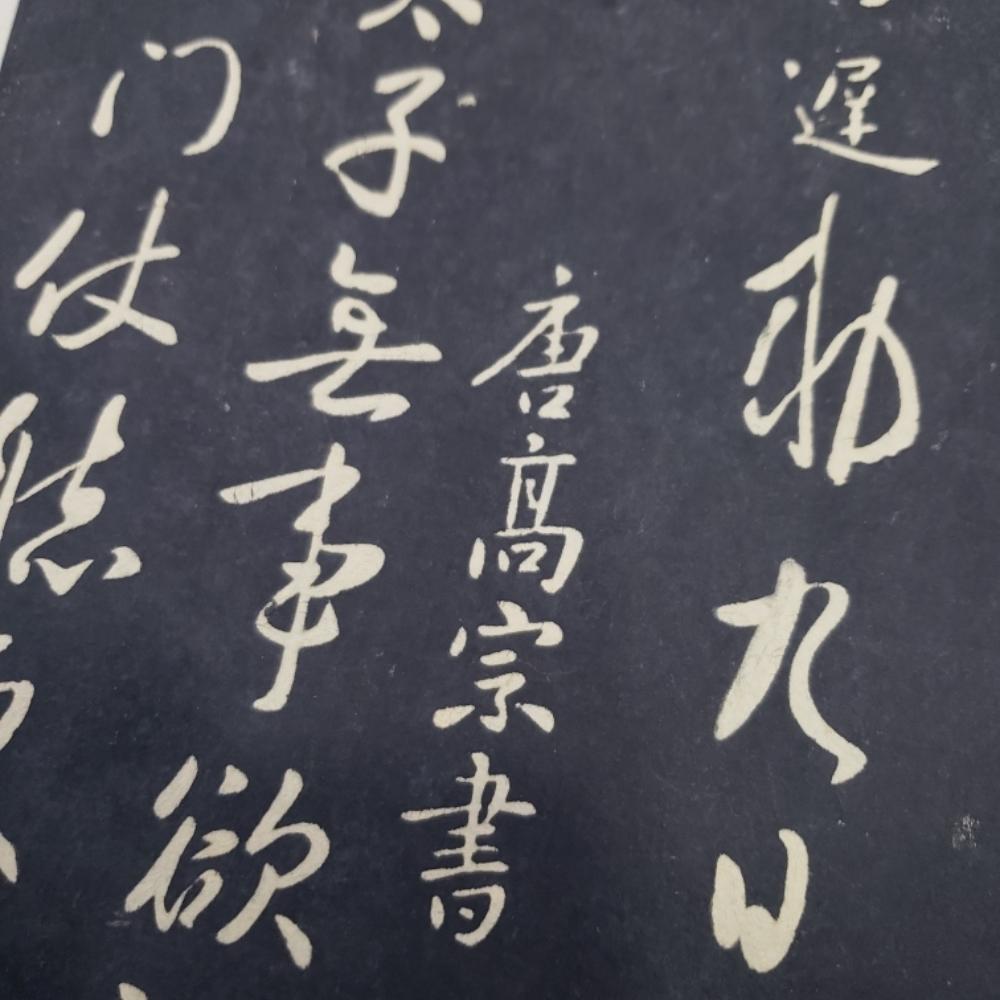 遲勅九日
唐高宗書
子無事欲
门仗聽